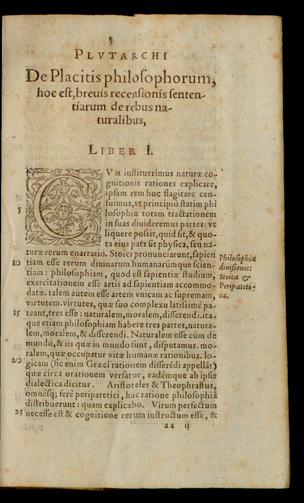 PLVTARCHI
De Placitis philosophorum,
hoc est, breuis recensionis senten-
tiarum de rebus na-
turalibus,
LIBER I.
CVM instituerimus naturæ co-
gnitionis rationes explicare,
ipsam rem hoc flagitare cen-
5 suimus, vt principio statim phi
losophiæ totam tractationem
in suas diuideremus partes: vt
liquere possit, quid sit, & quo-
ta eius pars sit physica, seu na-
turæ rerum enarratio. Stoici pronunciarunt, sapien
10 tiam esse rerum diuinarum humanarúmque scien-
tiam: philosophiam, quod est sapientiæ studium,
exercitationem esse artis ad sapientiam accommo-
datæ. talem autem esse artem vnicam ac supremam,
virtutem. virtutes, quæ suo complexu latissimè pa-
15 teant, tres esse: naturalem, moralem, disserendi. ita-
que etiam philosophiam habere tres partes, natura-
lem, moralem, & disserendi. Naturalem esse cùm de
mundo, & iis quæ in mundo sunt, disputamus. mo-
ralem, quæ occupatur vitæ humanæ rationibus. lo-
20 gicam (sic enim Græci rationem disserēdi appellāt)
quæ circa orationem versatur, eadémque ab ipsis
dialectica dicitur. Aristoteles & Theophrastus,
omnésq; ferè peripatetici, hac ratione philosophiā
distribuerunt: quam explicabo. Virum perfectum
25 necesse est & cognitione rerum instructum esse, &
aa ij
Philosophiæ
diuisiones:
Stoica &
Peripateti-
ca.